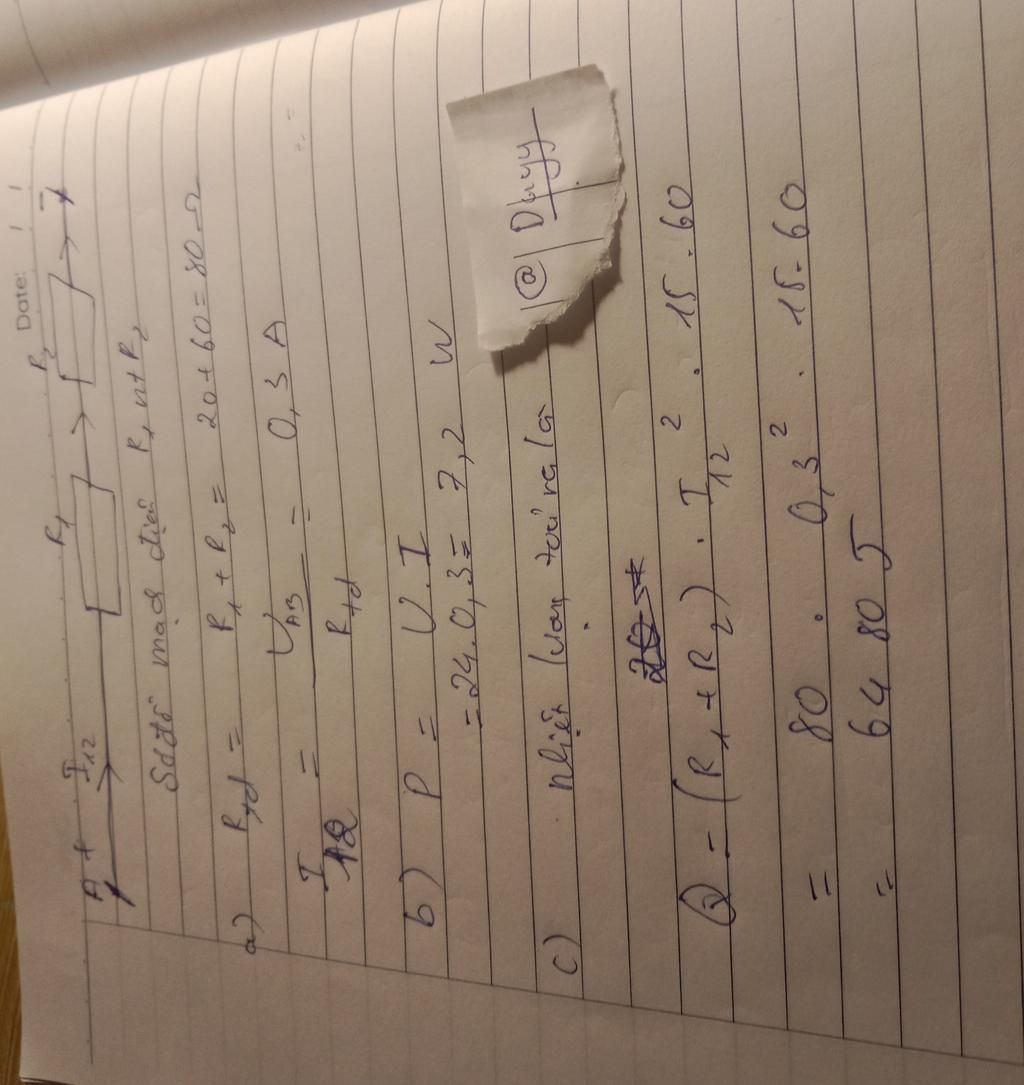 Date: / /
A + I12 R1 R2 -
Sơ đồ mạch điện R1 nt R2
a) Rtđ = R1 + R2 = 20 + 60 = 80 Ω
I12 = UAB / Rtđ = 0,3 A
b) P = U.I
= 24.0,3 = 7,2 W
@ Duyy
c) nhiệt lượng toả ra là
Q = (R1 + R2) . I12² . 15 . 60
= 80 . 0,3² . 15 . 60
= 6480 J